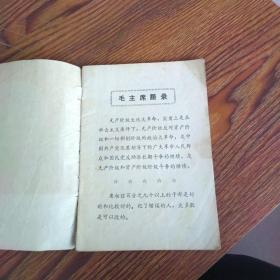 毛主席语录
无产阶级文化大革命，实质上是在
社会主义条件下，无产阶级反对资产阶
级和一切剥削阶级的政治大革命，是中
国共产党及其领导下的广大革命人民群
众和国民党反动派长期斗争的继续，是
无产阶级和资产阶级阶级斗争的继续。
要相信百分之九十以上的干部是好
的和比较好的。犯了错误的人，大多数
是可以改的。